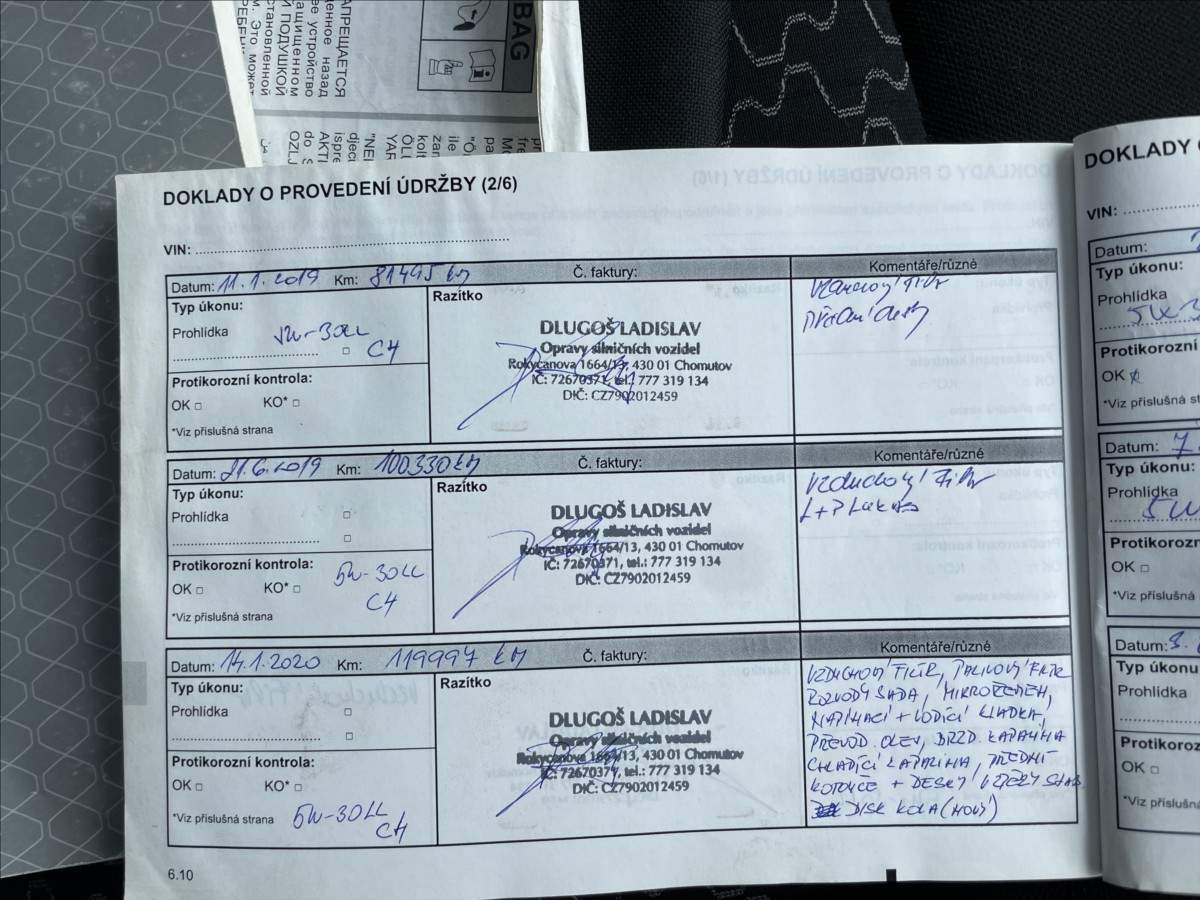 BAG
АПРЕЩАЕТСЯ
енное назад
ее устройство
ащищенном
Й ПОДУШКОЙ
становленной
м. Это может
DOKLADY O PROVEDENÍ ÚDRŽBY (2/6)
VIN:
Datum: 11.1.2019 Km: 81495 km Č. faktury: Komentáře/různé
Typ úkonu:
Prohlídka 5W-30LL
C4
Protikorozní kontrola:
OK □ KO* □
*Viz příslušná strana
Razítko
DLUGOŠ LADISLAV
Opravy silničních vozidel
Rokycanova 1664/13, 430 01 Chomutov
IČ: 72670371, tel.: 777 319 134
DIČ: CZ7902012459
Vzduchový filtr
přední desky
Datum: 21.6.2019 Km: 100330 km Č. faktury: Komentáře/různé
Typ úkonu:
Prohlídka □
□
Protikorozní kontrola:
OK □ KO* □ 5W-30LL
C4
*Viz příslušná strana
Razítko
DLUGOŠ LADISLAV
Opravy silničních vozidel
Rokycanova 1664/13, 430 01 Chomutov
IČ: 72670371, tel.: 777 319 134
DIČ: CZ7902012459
Vzduchový filtr
L+P
Datum: 14.1.2020 Km: 119997 km Č. faktury: Komentáře/různé
Typ úkonu:
Prohlídka □
□
Protikorozní kontrola:
OK □ KO* □
*Viz příslušná strana 5W-30LL
C4
Razítko
DLUGOŠ LADISLAV
Opravy silničních vozidel
Rokycanova 1664/13, 430 01 Chomutov
IČ: 72670371, tel.: 777 319 134
DIČ: CZ7902012459
VZDUCHOVÝ FILTR, PALIVOVÝ FILTR
ROZVODY SADA, MIKROŘEMEN,
NAPÍNACÍ + VODÍCÍ KLADKA,
PŘEVOD. OLEJ, BRZD. KAPALINA
CHLADÍCÍ KAPALINA, PŘEDNÍ
KOTOUČE + DESKY, VZPĚRY STAB
DISK KOLA (NOVÝ)
6.10
DOKLADY
VIN:
Datum:
Typ úkonu:
Prohlídka
Protikorozní
OK
*Viz příslušná st
Datum: 7.
Typ úkonu:
Prohlídka
5W
Protikorozn
OK □
*Viz příslušná
Datum: 8.
Typ úkonu
Prohlídka
Protikoroz
OK □
*Viz příslušn